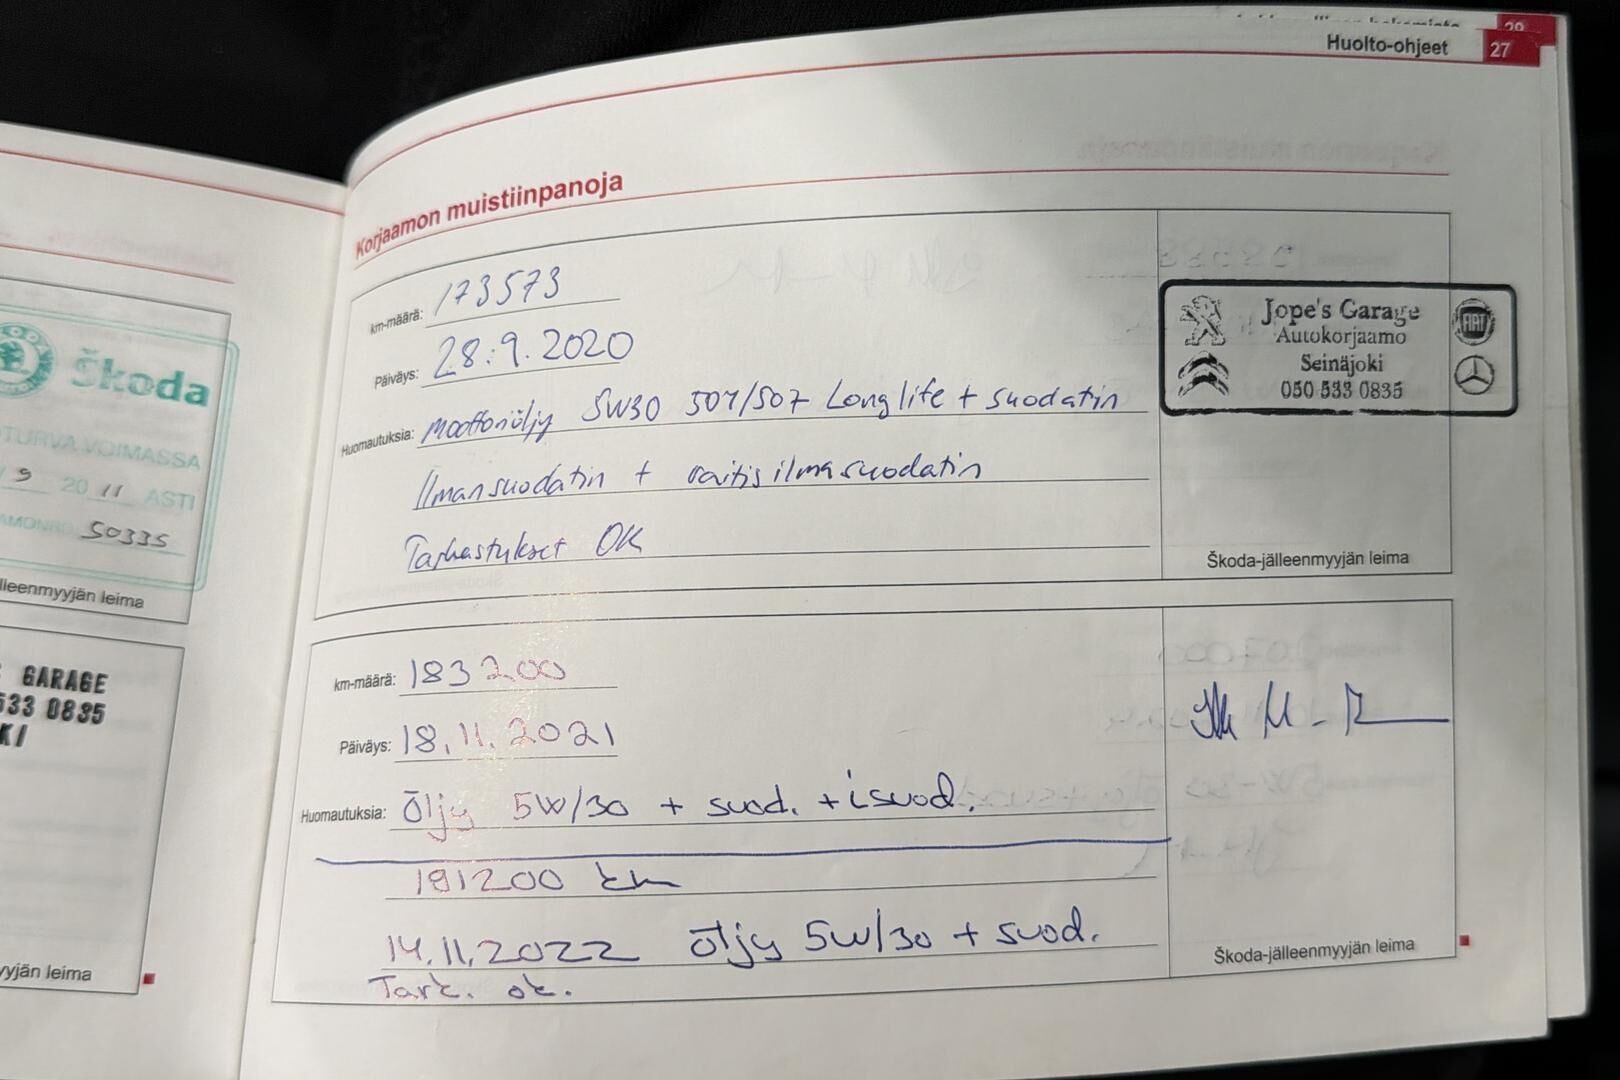 Huolto-ohjeet 27
29
Korjaamon muistiinpanoja
km-määrä: 173573
Päiväys: 28.9.2020
Huomautuksia: Moottoriöljy 5W30 504/507 Longlife + suodatin
Ilmansuodatin + raitisilmasuodatin
Tarkastukset OK
Jope's Garage
Autokorjaamo
Seinäjoki
050 533 0835
FIAT
Škoda-jälleenmyyjän leima
km-määrä: 183200
Päiväys: 18.11.2021
Huomautuksia: Öljy 5W/30 + suod. + isuod.
191200 km
14.11.2022 öljy 5W/30 + suod.
Tark. ok.
Škoda-jälleenmyyjän leima
Škoda
TURVA VOIMASSA
9 2011 ASTI
50335
lleenmyyjän leima
GARAGE
533 0835
KI
yyjän leima